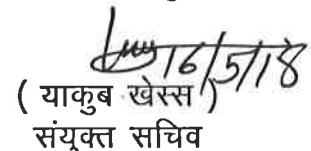 16/5/18
( याकुब खेस्स )
संयुक्त सचिव